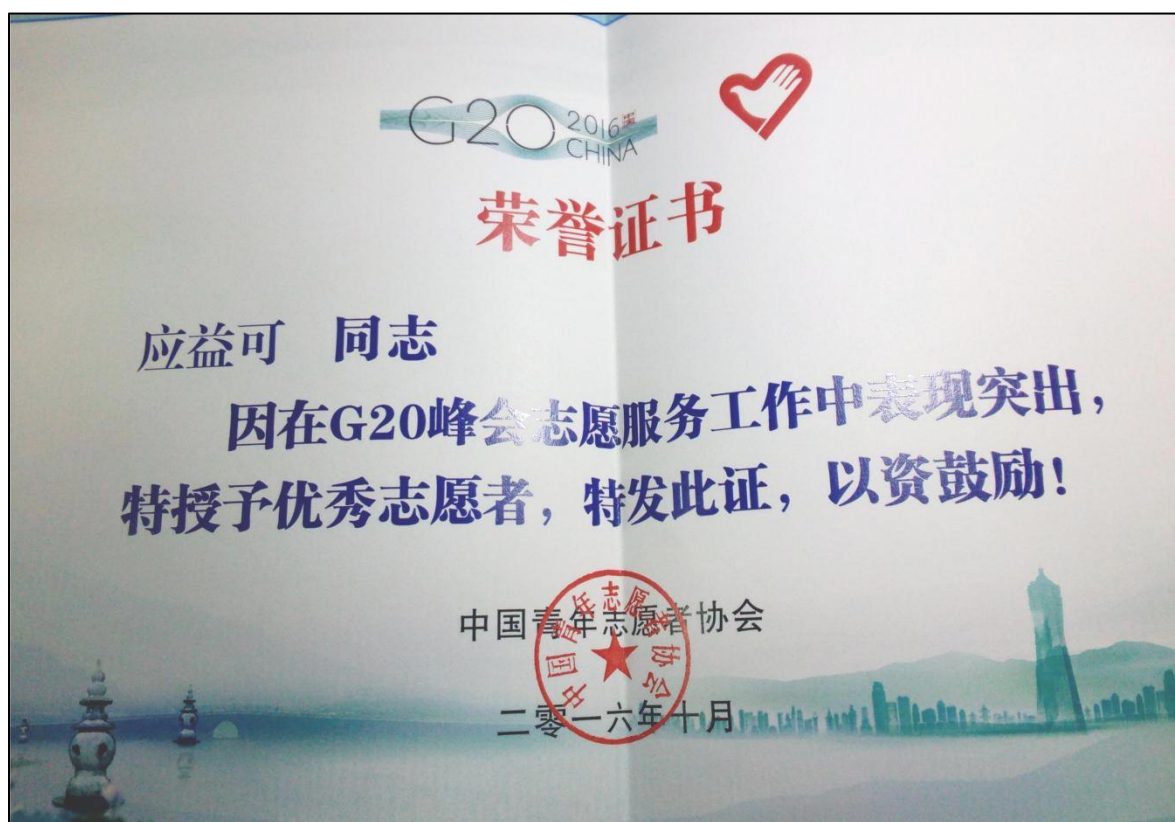 G20 2016
CHINA
荣誉证书
应益可 同志
因在G20峰会志愿服务工作中表现突出,
特授予优秀志愿者,特发此证,以资鼓励!
中国青年志愿者协会
中国青年志愿者协会
二零一六年十月